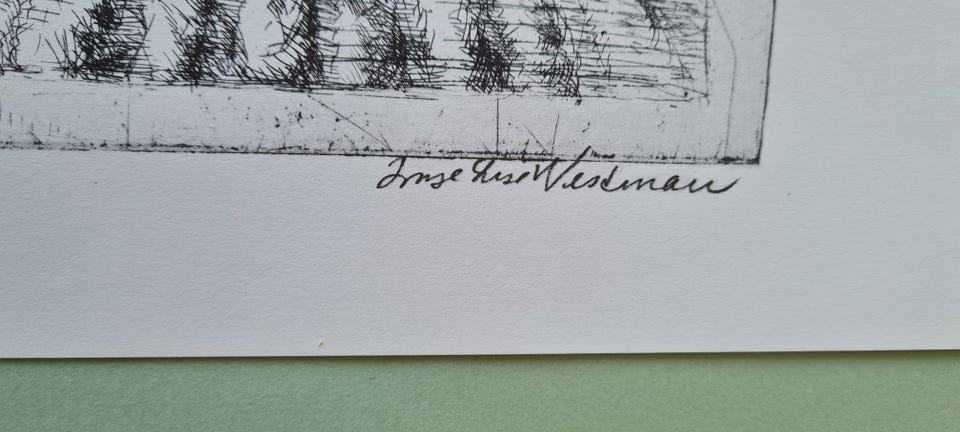 Inge Lise Westman